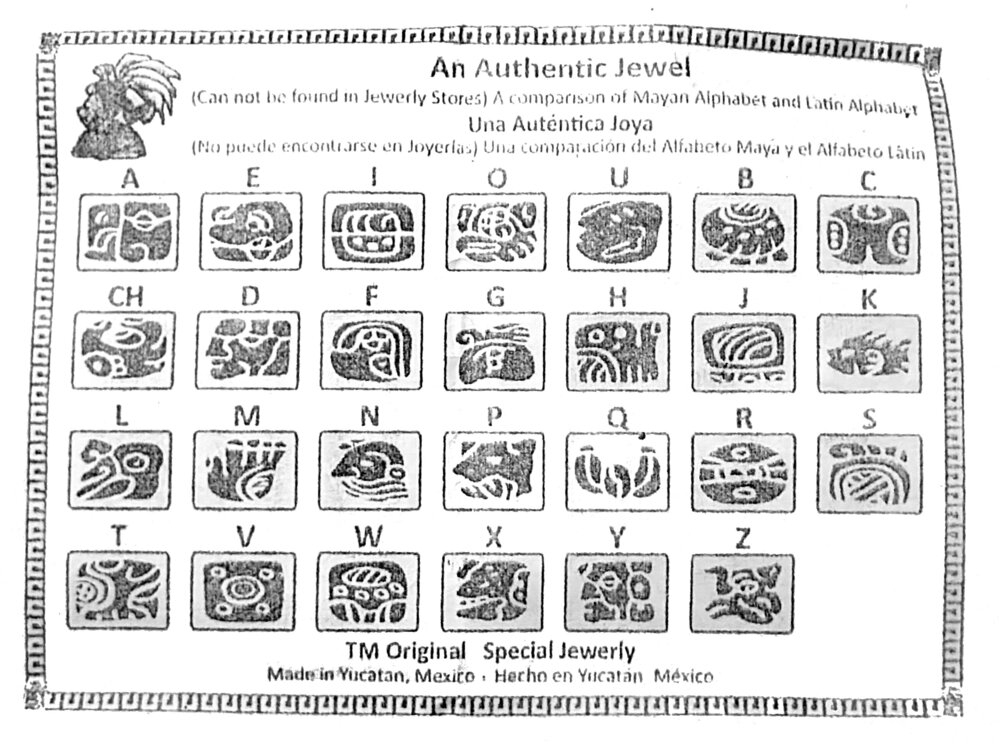 An Authentic Jewel
(Can not be found in Jewerly Stores) A comparison of Mayan Alphabet and Latin Alphabet
Una Auténtica Joya
(No puede encontrarse en Joyerías) Una comparación del Alfabeto Maya y el Alfabeto Látin
A E I O U B C
CH D F G H J K
L M N P Q R S
T V W X Y Z
TM Original Special Jewerly
Made in Yucatan, Mexico · Hecho en Yucatán México